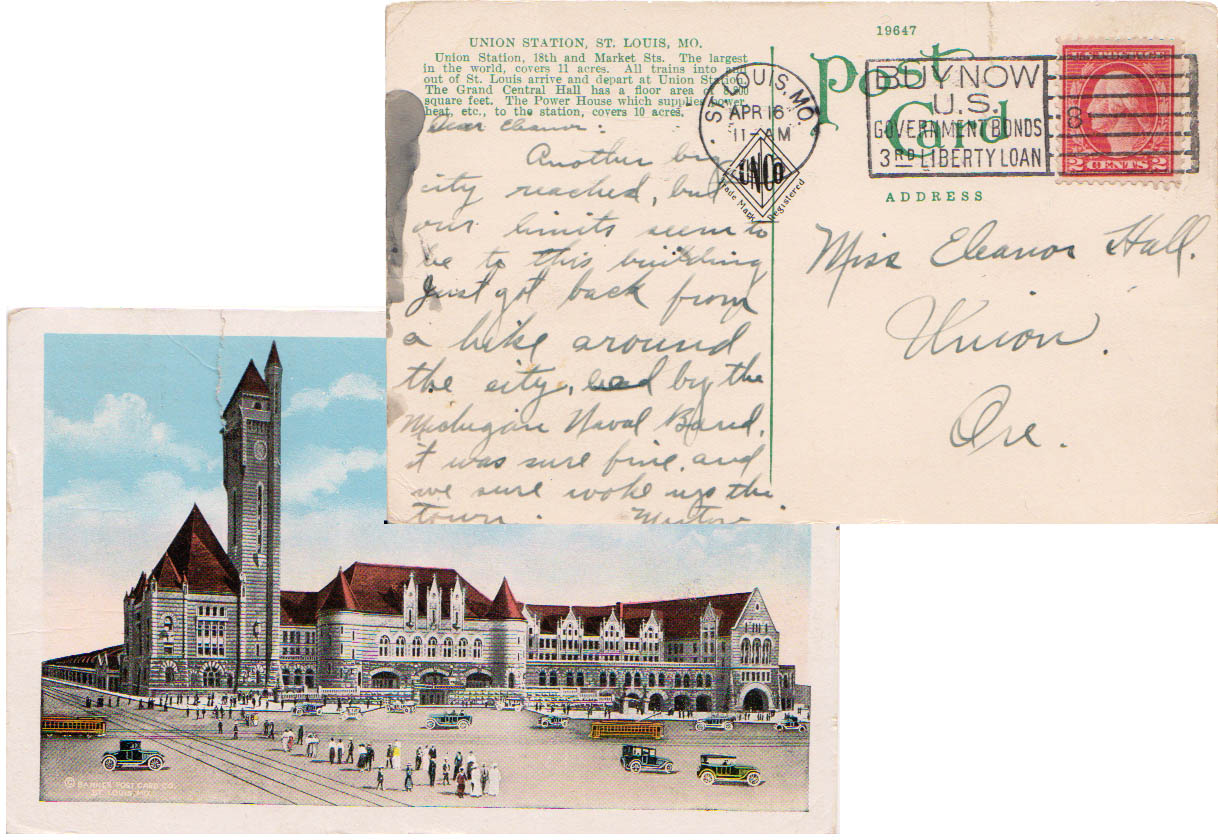 19647
UNION STATION, ST. LOUIS, MO.
Union Station, 18th and Market Sts. The largest
in the world, covers 11 acres. All trains into and
out of St. Louis arrive and depart at Union Station.
The Grand Central Hall has a floor area of
square feet. The Power House which supplies power,
heat, etc., to the station, covers 10 acres.
Post
Card
ST. LOUIS, MO.
APR 16
11-AM
8
BUY NOW
U.S.
GOVERNMENT BONDS
3RD LIBERTY LOAN
2 CENTS 2
Trade Mark Registered
ADDRESS
Dear Eleanor:
Another big
city reached, but
our limits seem to
be to this building
Just got back from
a hike around
the city, lead by the
Michigan Naval Band,
it was sure fine, and
we sure woke up the
town.
Miss Eleanor Hall.
Union.
Ore.
© BARNES POST CARD CO.
ST. LOUIS, MO.